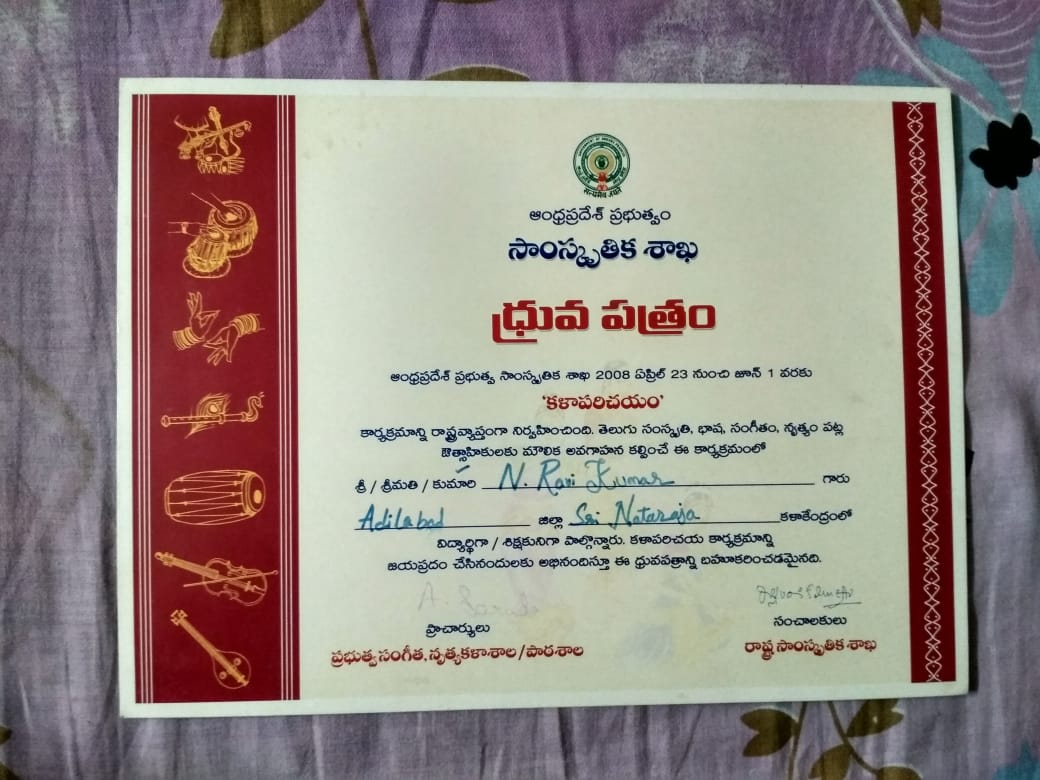 सत्यमेव जयते
ఆంధ్రప్రదేశ్ ప్రభుత్వం
సాంస్కృతిక శాఖ
ధ్రువ పత్రం
ఆంధ్రప్రదేశ్ ప్రభుత్వ సాంస్కృతిక శాఖ 2008 ఏప్రిల్ 23 నుంచి జూన్ 1 వరకు
'కళాపరిచయం'
కార్యక్రమాన్ని రాష్ట్రవ్యాప్తంగా నిర్వహించింది. తెలుగు సంస్కృతి, భాష, సంగీతం, నృత్యం పట్ల
ఔత్సాహికులకు మౌలిక అవగాహన కల్పించే ఈ కార్యక్రమంలో
శ్రీ / శ్రీమతి / కుమారి N. Ravi Kumar గారు
Adilabad జిల్లా Sri Nataraja కళాకేంద్రంలో
విద్యార్థిగా / శిక్షకునిగా పాల్గొన్నారు. కళాపరిచయ కార్యక్రమాన్ని
జయప్రదం చేసినందులకు అభినందిస్తూ ఈ ధ్రువపత్రాన్ని బహూకరించడమైనది.
ప్రాచార్యులు
ప్రభుత్వ సంగీత, నృత్యకళాశాల / పాఠశాల
సంచాలకులు
రాష్ట్ర సాంస్కృతిక శాఖ